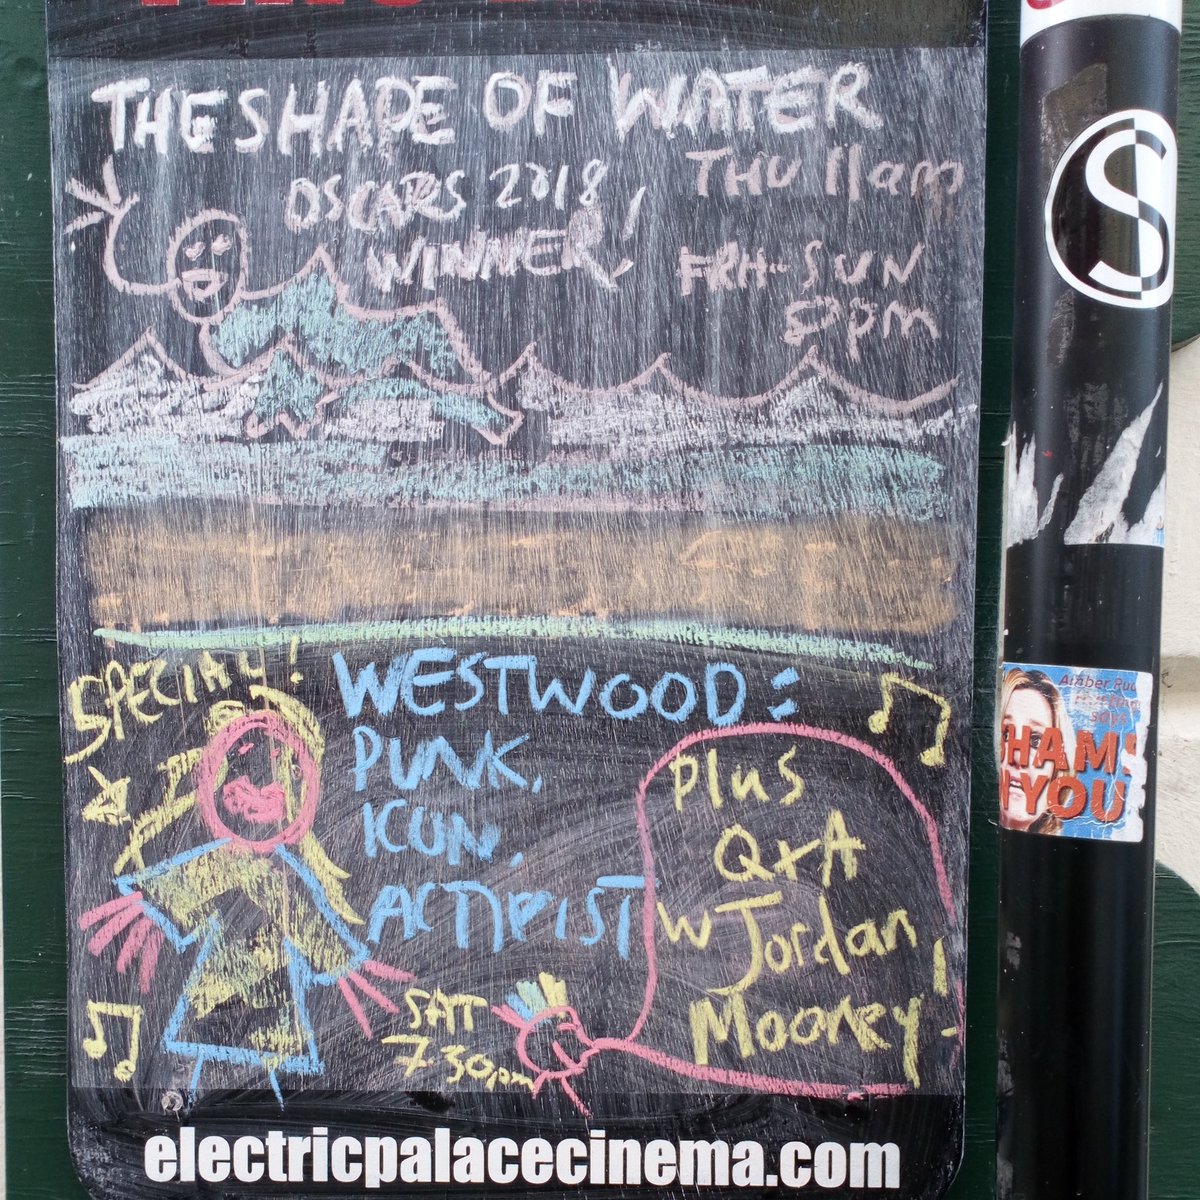 THE SHAPE OF WATER
OSCARS 2018
WINNER!
THU 11am
FRI-SUN
8pm
SPECIAL!
WESTWOOD:
PUNK,
ICON,
ACTIVIST
plus
Q+A
W Jordan
Mooney!
SAT
7.30pm
electricpalacecinema.com
S
Amber Rud
says
SHAME
YOU